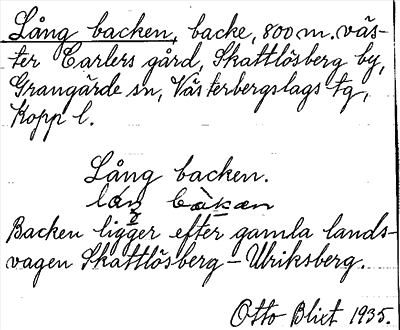 Lång backen, backe, 800 m. väs-
ter Carlers gård, Skattlösberg by,
Grangärde sn, Västerbergslags tg,
Kopp l.
Lång backen.
Backen ligger efter gamla lands-
vagen Skattlösberg - Ulriksberg.
Otto Blixt 1935.